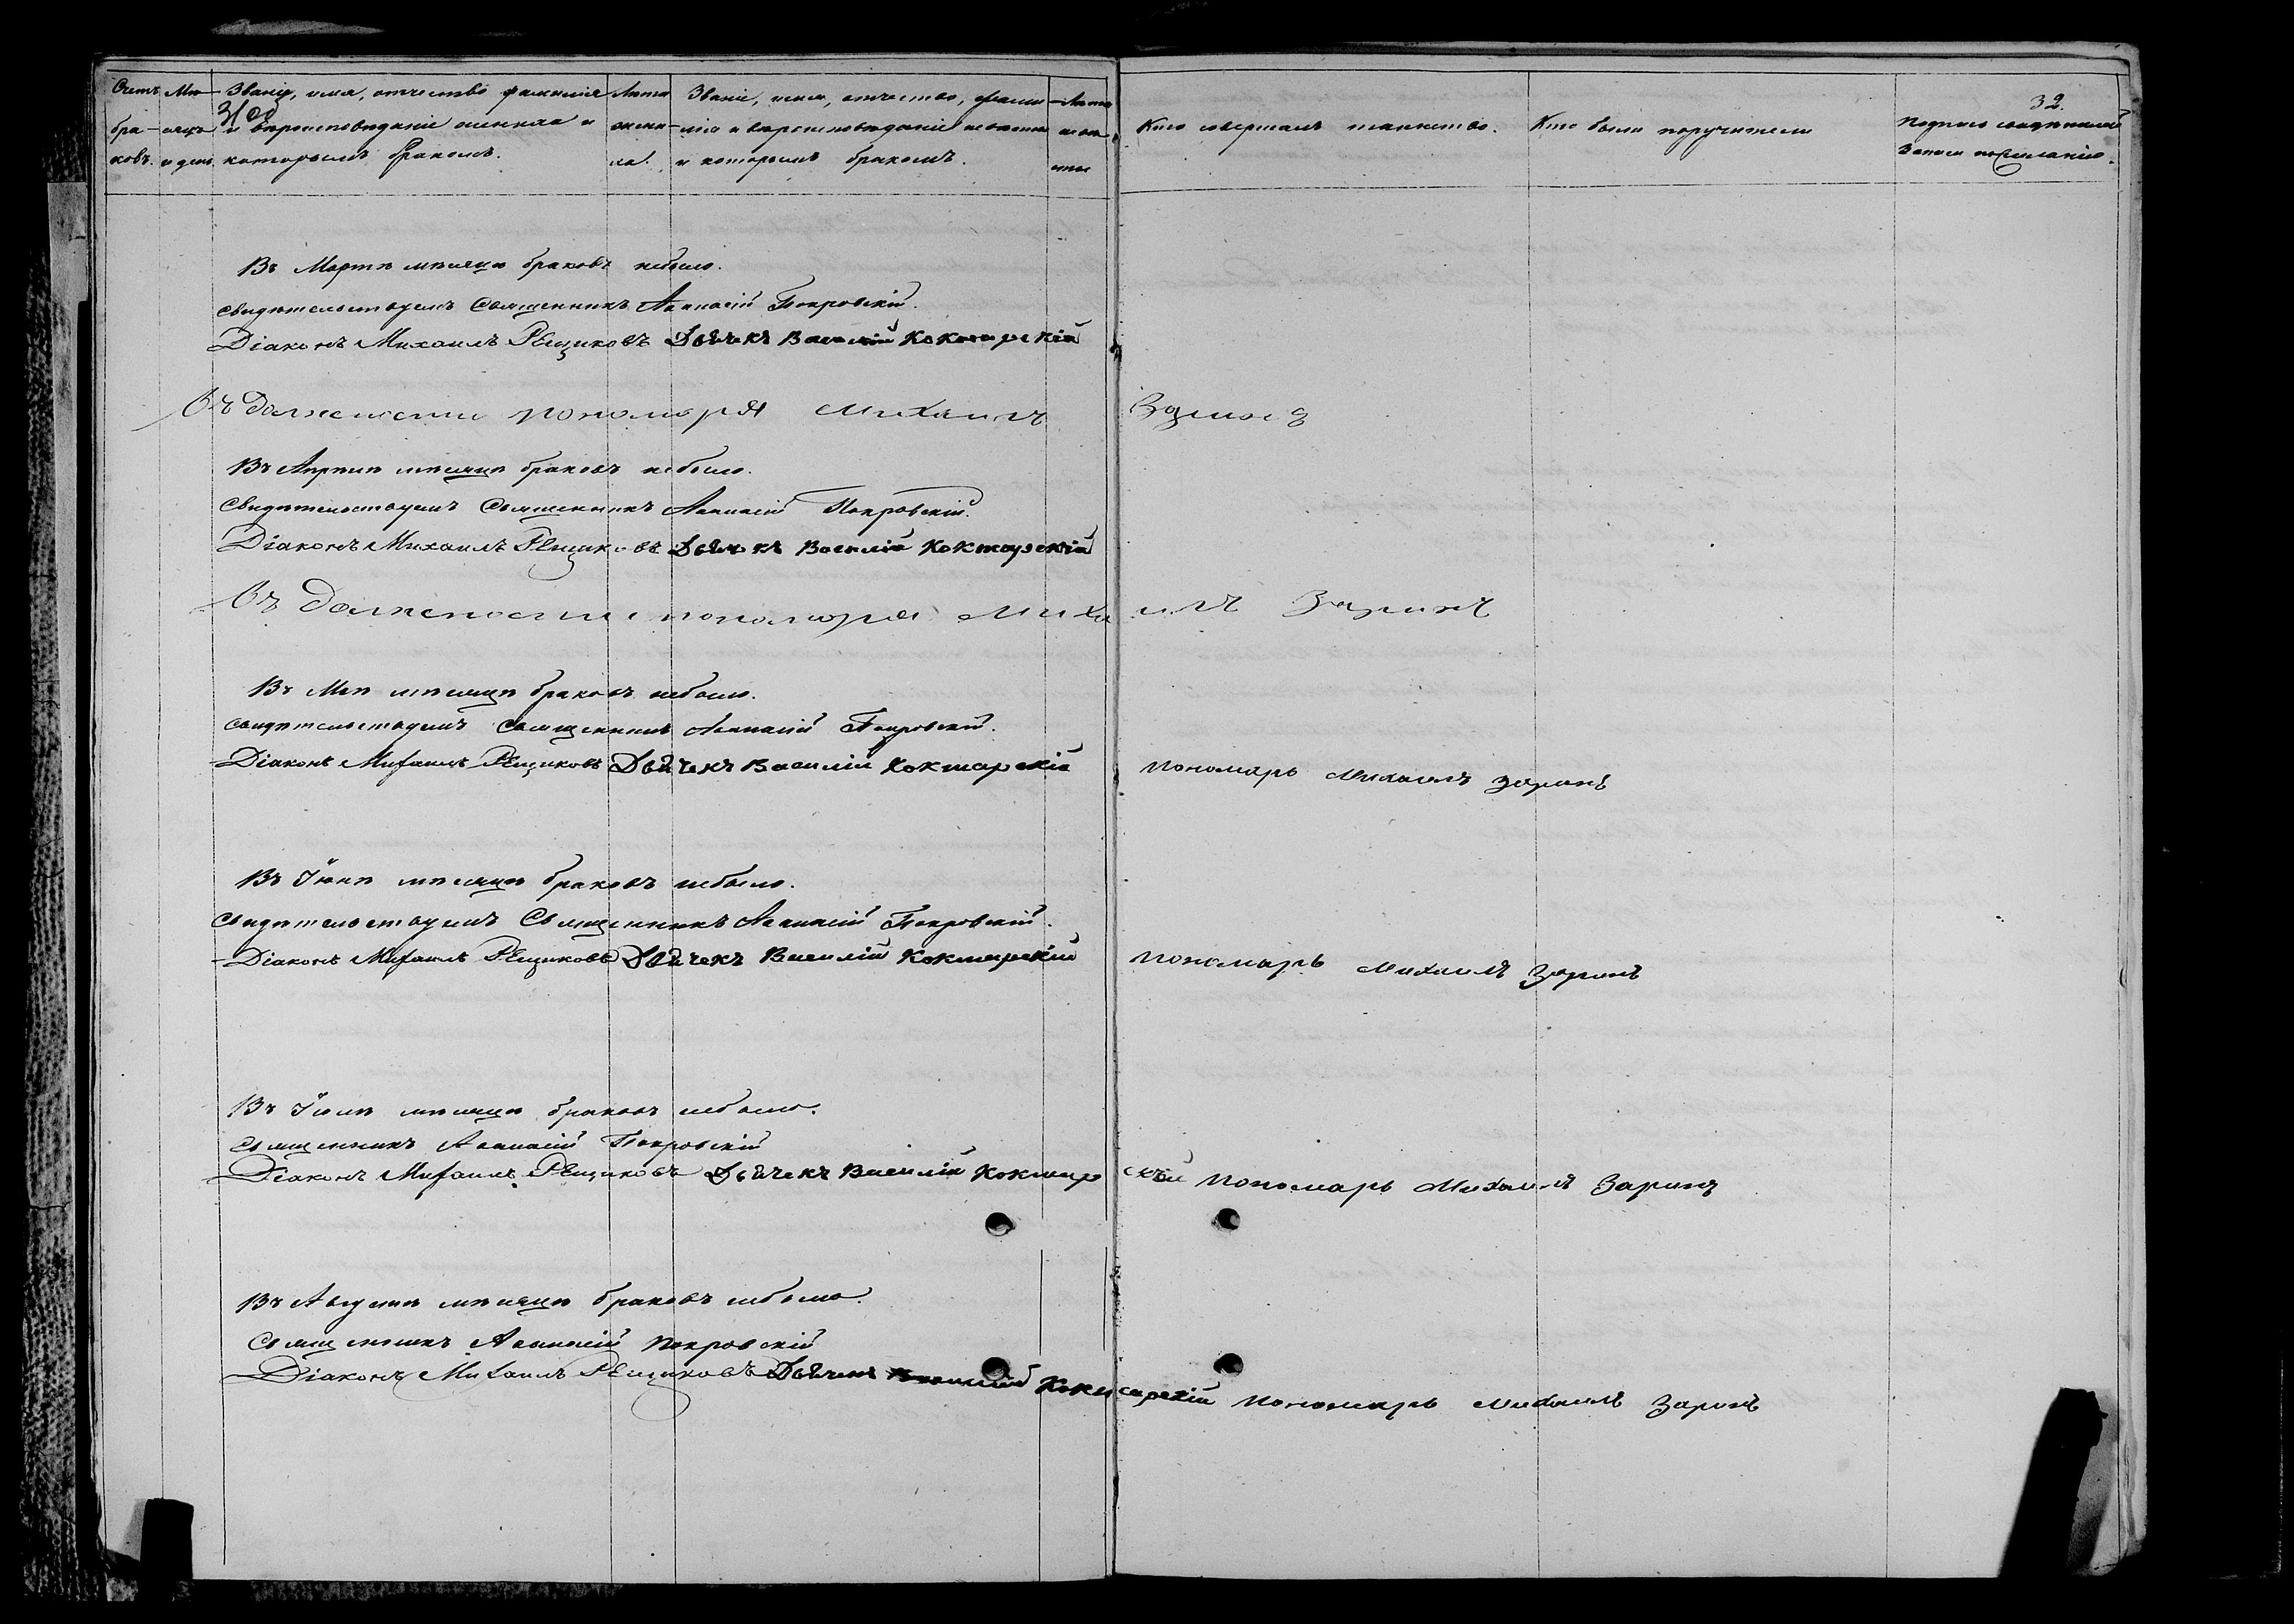 Счетъ бра-ковъ.
Мѣ-сяцъ и день
Званіе, имя, отчество фамилія и вѣроисповѣданіе жениха и которымъ бракомъ.
Лѣта жени-ха.
Званіе, имя, отчество, фами-лія и вѣроисповѣданіе невѣсты и которымъ бракомъ.
Лѣта невѣ-сты
Кто совершалъ таинство.
Кто были поручители
32.
Подпись свидѣтелей Записи по желанію.
Въ Мартѣ мѣсяцѣ браковъ небыло.
Свидѣтельствуемъ Священникъ Аѳанасій Покровскій.
Діаконъ Михаилъ Рѣщиковъ Дьячекъ Василій Кокшарскій
Въ должности пономаря Михаилъ Заринъ
Въ Апрѣлѣ мѣсяцѣ браковъ небыло.
Свидѣтельствуемъ Священникъ Аѳанасій Покровскій.
Діаконъ Михаилъ Рѣщиковъ Дьячекъ Василій Кокшарскій
Въ должности пономаря Михаилъ Заринъ
Въ Маѣ мѣсяцѣ браковъ небыло.
Свидѣтельствуемъ Священникъ Аѳанасій Покровскій.
Діаконъ Михаилъ Рѣщиковъ Дьячекъ Василій Кокшарскій Пономарь Михаилъ Заринъ
Въ Іюнѣ мѣсяцѣ браковъ небыло.
Свидѣтельствуемъ Священникъ Аѳанасій Покровскій.
Діаконъ Михаилъ Рѣщиковъ Дьячекъ Василій Кокшарскій Пономарь Михаилъ Заринъ
Въ Іюлѣ мѣсяцѣ браковъ небыло.
Священникъ Аѳанасій Покровскій
Діаконъ Михаилъ Рѣщиковъ Дьячекъ Василій Кокшарскій Пономарь Михаилъ Заринъ
Въ Августѣ мѣсяцѣ браковъ небыло.
Священникъ Аѳанасій Покровскій
Діаконъ Михаилъ Рѣщиковъ Дьячекъ Василій Кокшарскій Пономарь Михаилъ Заринъ